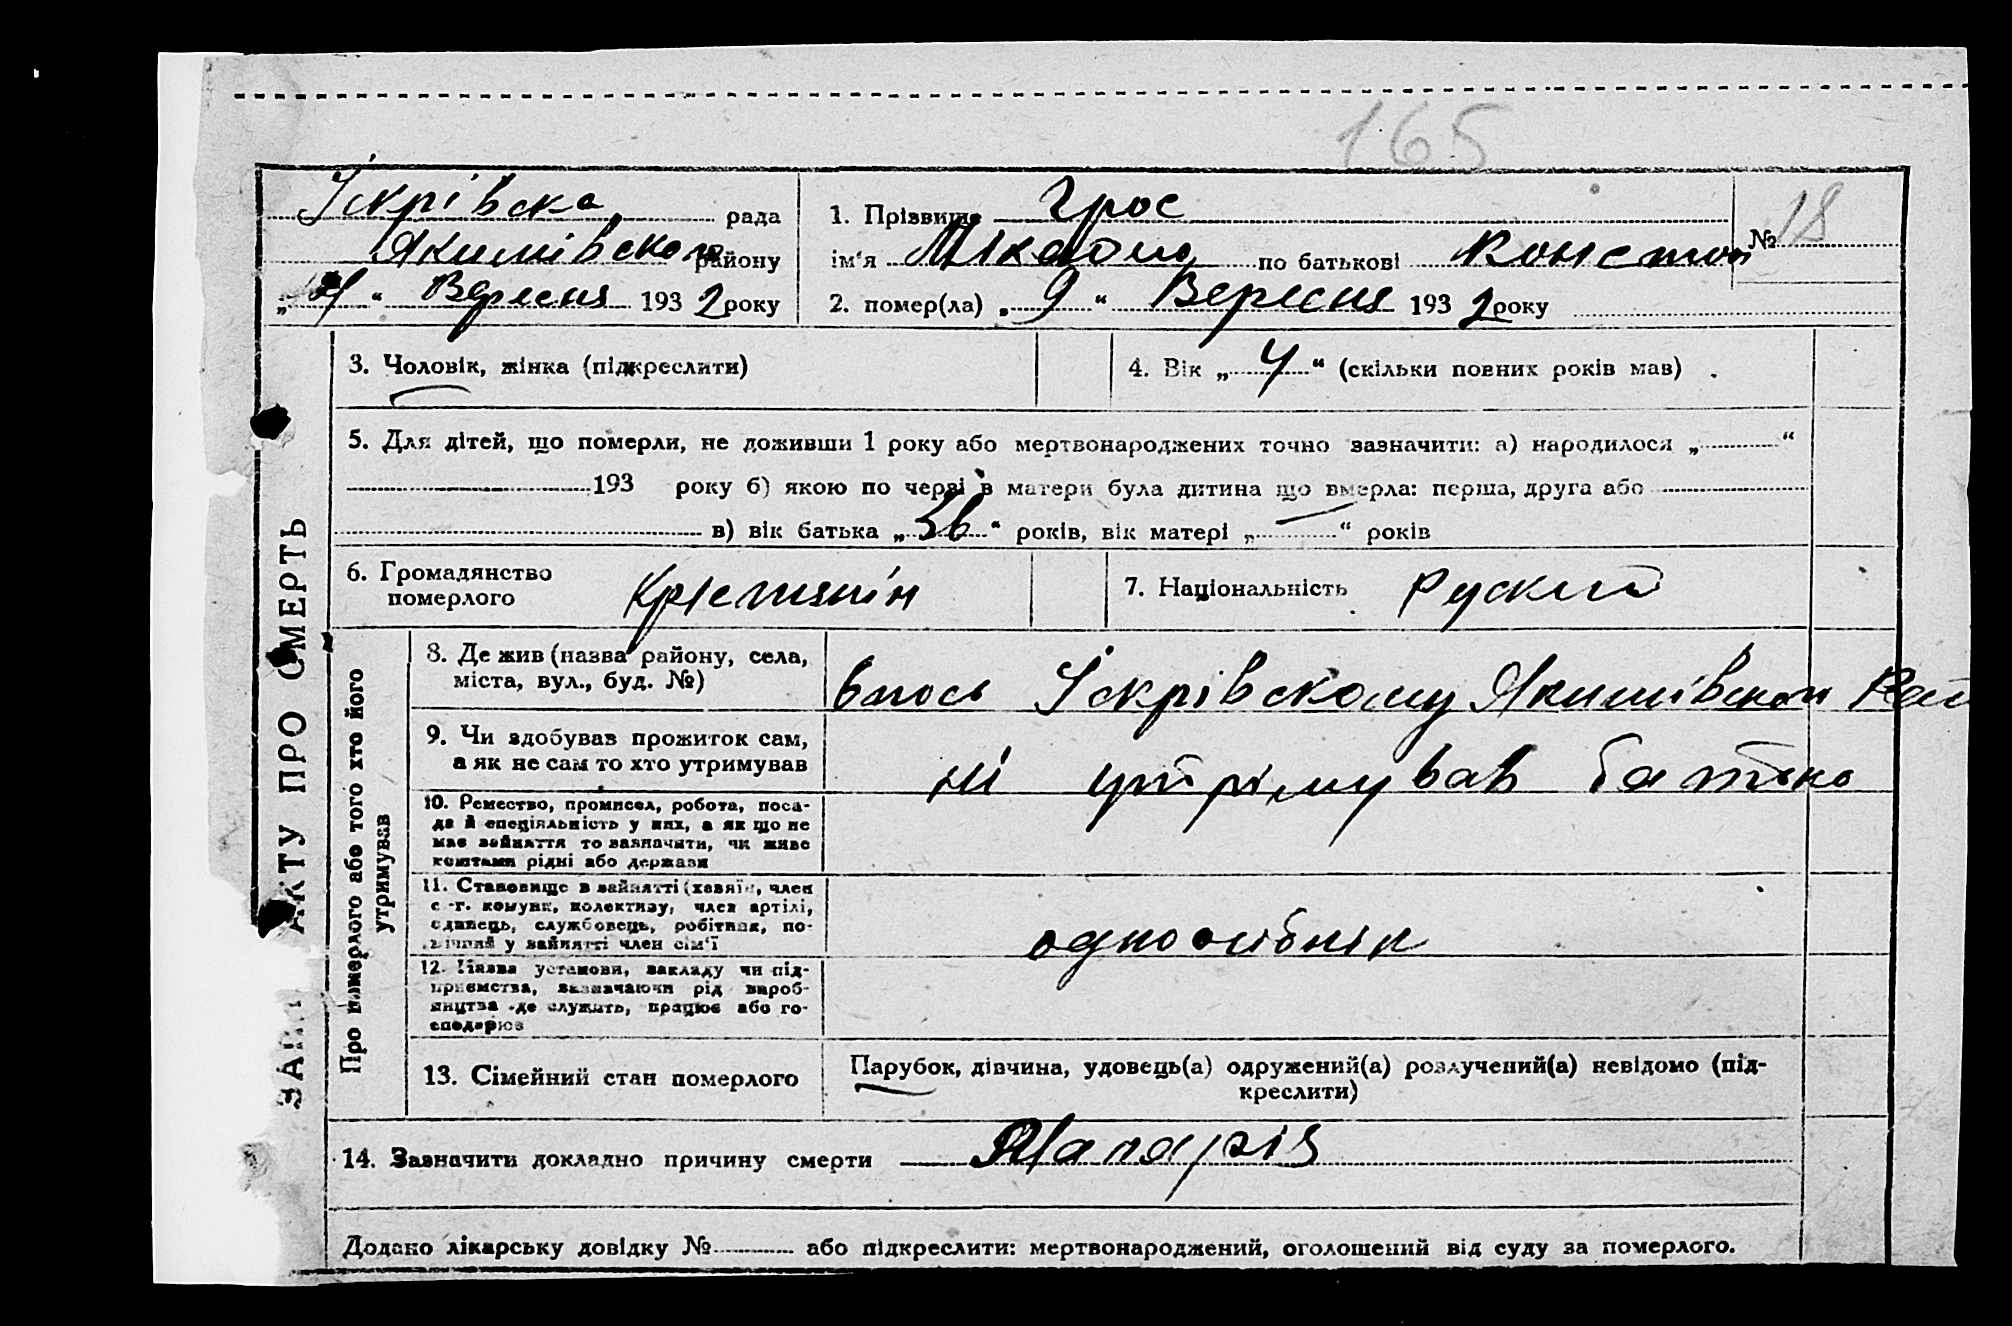 165
Іскрівска рада
Якимівского району
„ “ Вересня 1932 року
1. Прізвище Грос
ім'я по батькові Констан
№ 18
2. помер(ла) „9“ Вересня 1932 року
3. Чоловік, жінка (підкреслити)
4. Вік „4“ (скільки повних років мав)
5. Для дітей, що померли, не доживши 1 року або мертвонароджених точно зазначити: а) народилося „ “
193 року б) якою по черзі в матери була дитина що вмерла: перша, друга або
в) вік батька „36“ років, вік матері „ “ років
6. Громадянство
померлого
7. Національність Руский
ЗАПИ АКТУ ПРО СМЕРТЬ
Про вимерлого або того хто його
утримував
8. Де жив (назва району, села,
міста, вул., буд. №)
Іскрівскому Якимівском Рай
9. Чи здобував прожиток сам,
а як не сам то хто утримував
ні утрімував батько
10. Ремество, промисел, робота, поса-
да й спеціяльність у них, а як що не
має зайняття то зазначити, чи живе
коштами рідні або держави
11. Становище в зайнятті (хазяїн, член
с.-г. комуни, колективу, член артілі,
одинець, службовець, робітник, по-
мічний у зайнятті член сім'ї
одноосібнік
12. Назва установи, закладу чи під-
приємства, зазначаючи рід вироб-
ництва де служить, працює або го-
сподарює
13. Сімейний стан померлого
Парубок, дівчина, удовець(а) одружений(а) розлучений(а) невідомо (під-
креслити)
14. Зазначити докладно причину смерти Маларія
Додано лікарську довідку № або підкреслити: мертвонароджений, оголошений від суду за померлого.